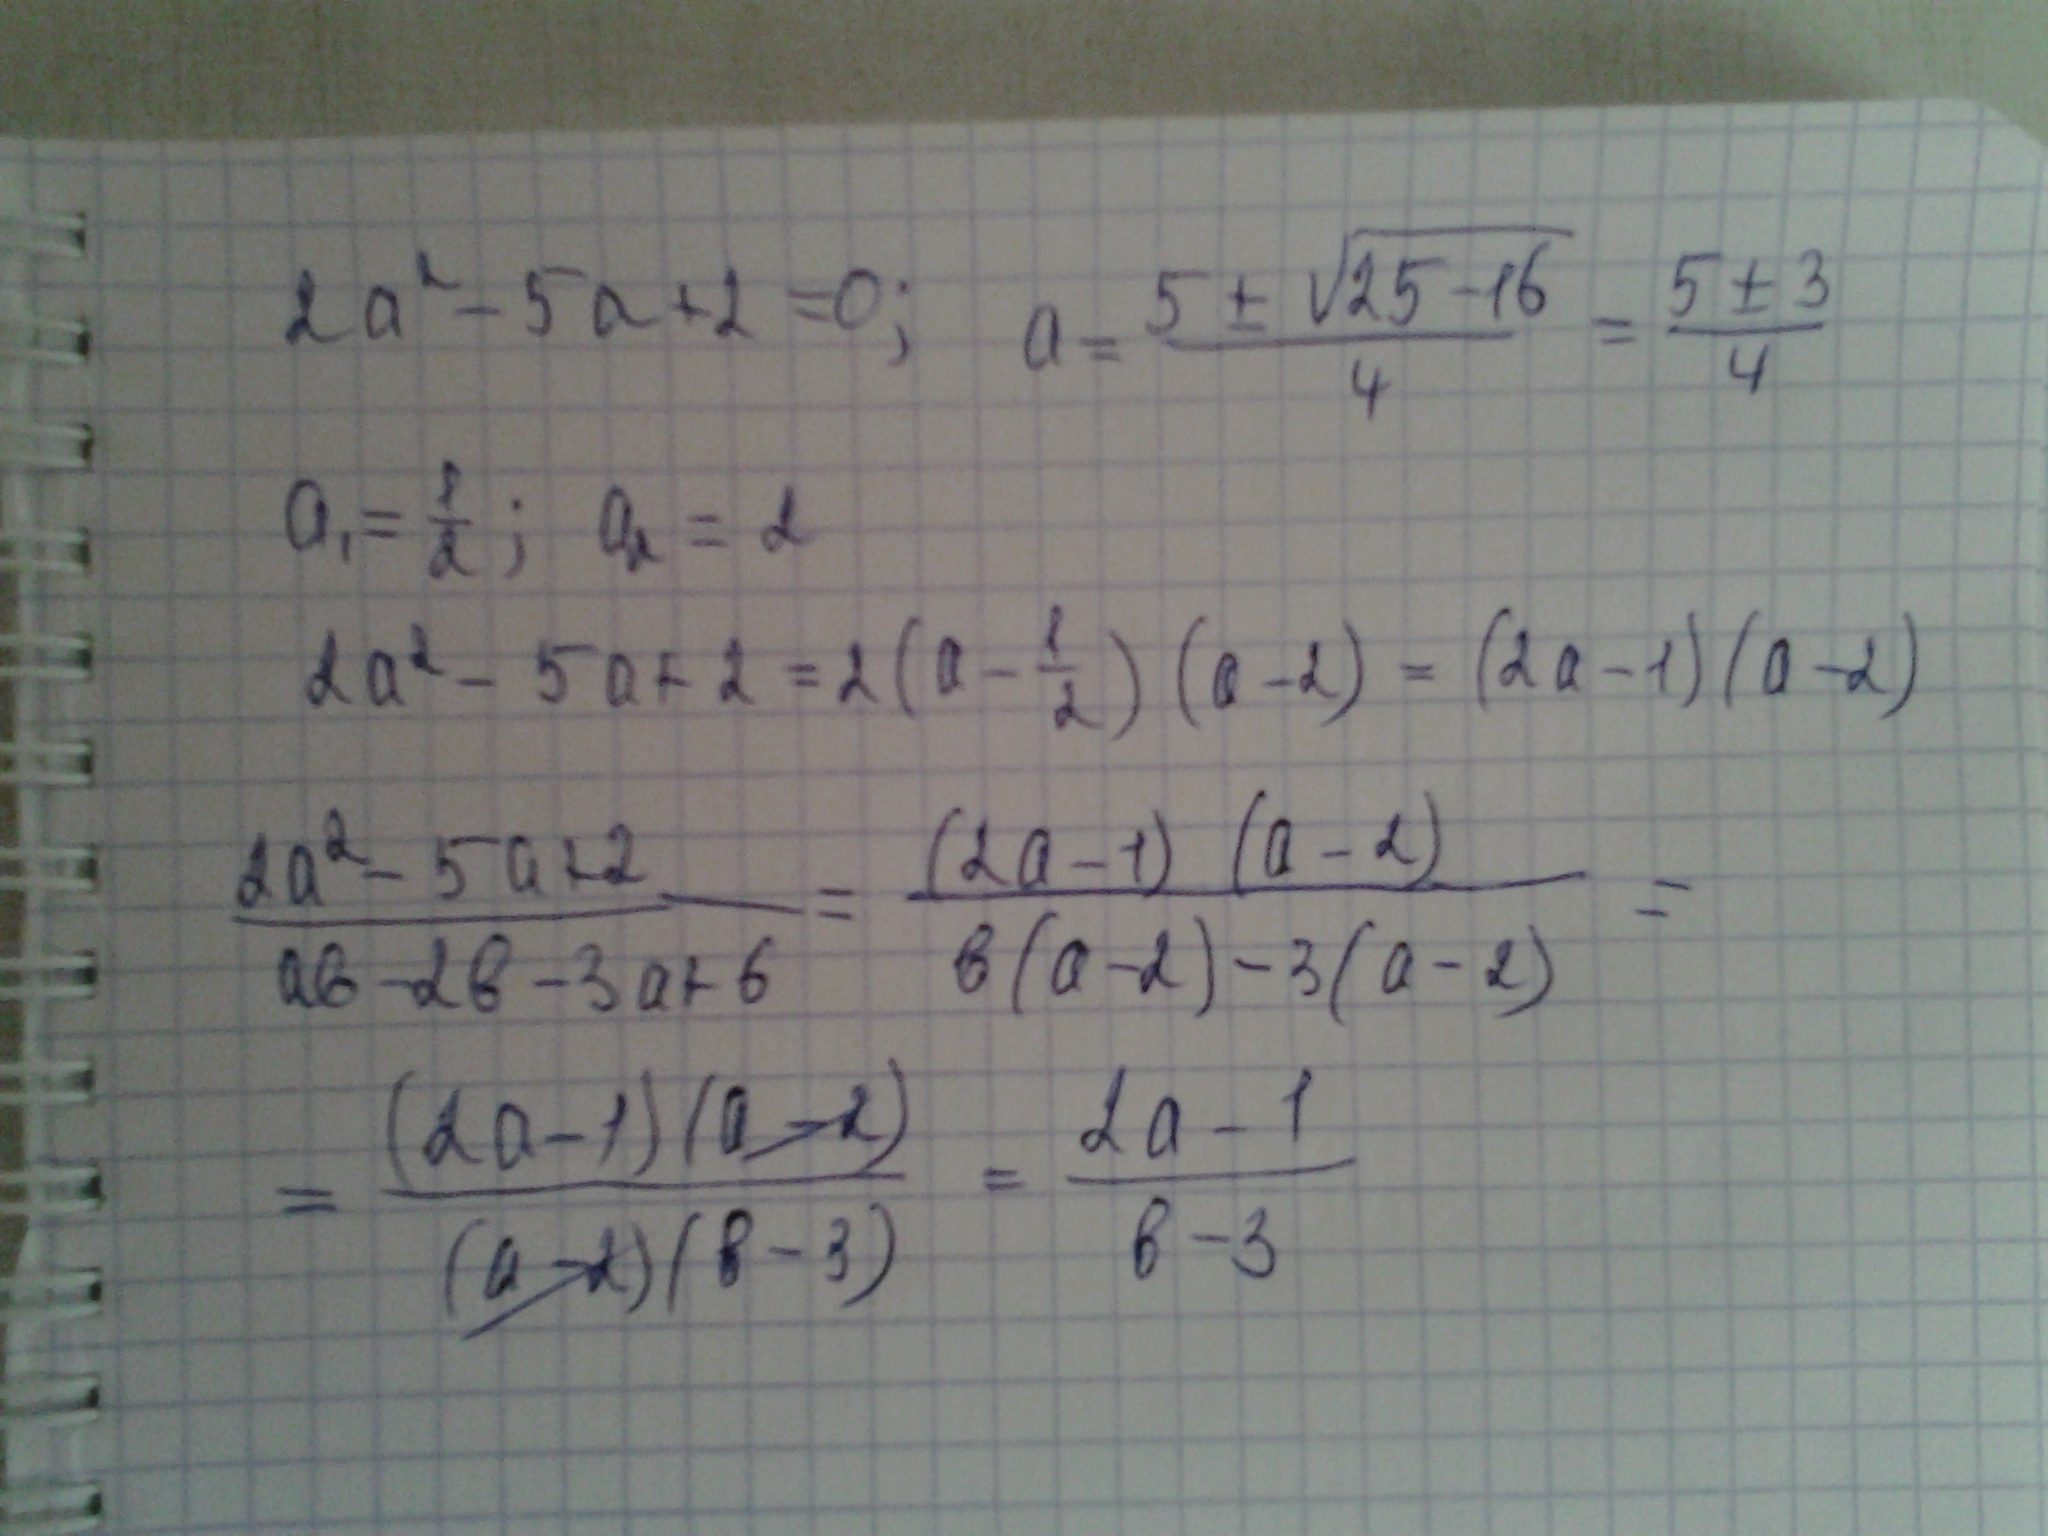 2a² - 5a + 2 = 0; a = (5 ± √(25 - 16))/4 = (5 ± 3)/4
a₁ = 1/2; a₂ = 2
2a² - 5a + 2 = 2(a - 1/2)(a - 2) = (2a - 1)(a - 2)
(2a² - 5a + 2)/(ab - 2b - 3a + 6) = ((2a - 1)(a - 2))/(b(a - 2) - 3(a - 2)) =
= ((2a - 1)(a - 2))/((a - 2)(b - 3)) = (2a - 1)/(b - 3)